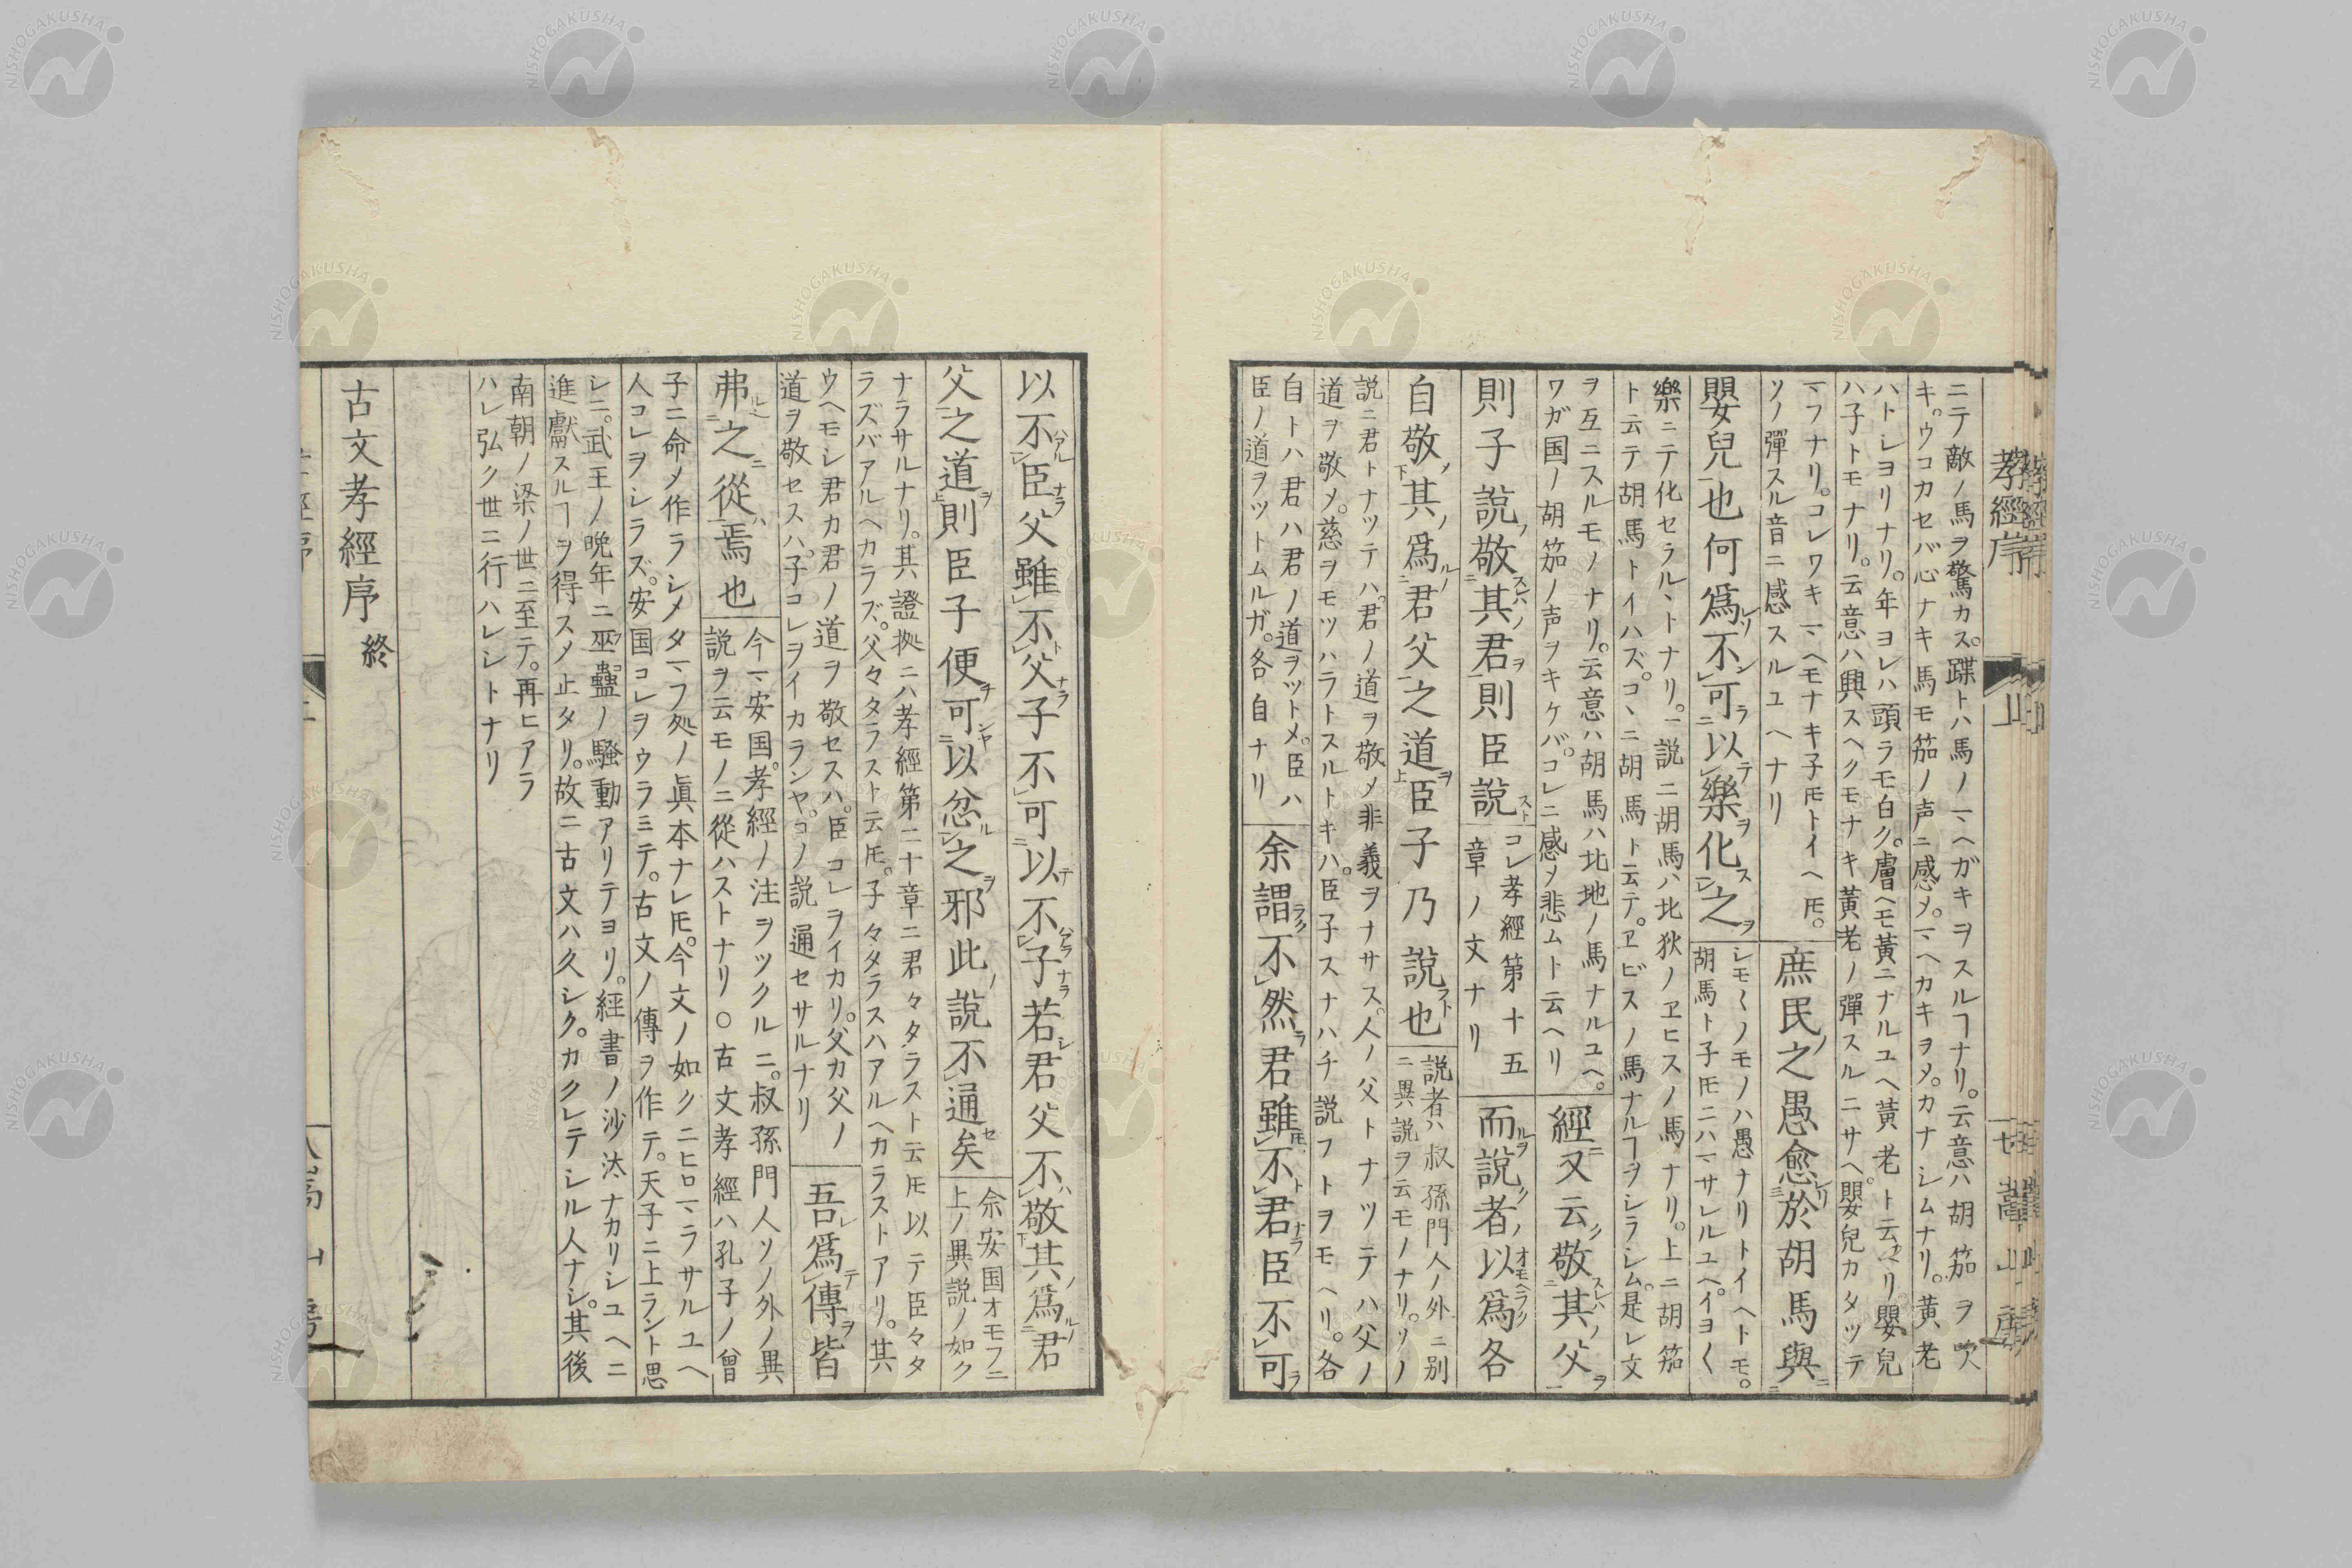 孝經序
ニテ敵ノ馬ヲ驚カス。蹀トハ馬ノマヘガキヲスルヿナリ。云意ハ胡笳ヲ吹
キ。ウコカセバ心ナキ馬モ笳ノ声ニ感メ。マヘカキヲメ。カナシムナリ。黄老
ハトシヨリナリ。年ヨレハ頭ラモ白ク。膚ヘモ黄ニナルユヘ黄老ト云マリ嬰兒
ハ子トモナリ。云意ハ興スヘクモナキ黄老ノ彈スルニサヘ。嬰兒カタツテ
マフナリ。コレワキマヘモナキ子𪜈トイヘ𪜈。
ソノ彈スル音ニ感スルユヘナリ
庶民之愚愈於胡馬與
嬰兒也何爲不可以樂化之
シモ〱ノモノハ愚ナリトイヘトモ。
胡馬ト子𪜈ニハマサレルユヘ。イヨ〱
樂ニテ化セラルヽトナリ。一説ニ胡馬ハ北狄ノヱヒスノ馬ナリ。上ニ胡笳
ト云テ胡馬トイハズ。コヽニ胡馬ト云テ。ヱビスノ馬ナルヿヲシラシム。是レ文
ヲ互ニスルモノナリ。云意ハ胡馬ハ北地ノ馬ナルユヘ。
ワガ国ノ胡笳ノ声ヲキケバ。コレニ感メ悲ムト云ヘリ
經又云敬其父
則子説敬其君則臣説
コレ孝經第十五
章ノ文ナリ
而説者以爲各
自敬其爲君父之道臣子乃説也
説者ハ叔孫門人ノ外ニ別
ニ異説ヲ云モノナリ。ソノ
説ニ君トナツテハ。君ノ道ヲ敬メ非義ヲナサス。人ノ父トナツテハ父ノ
道ヲ敬メ。慈ヲモツハラトスルトキハ。臣子スナハチ説フトヲモヘリ。各
自トハ君ハ君ノ道ヲツトメ。臣ハ
臣ノ道ヲツトムルガ。各自ナリ
余謂不然君雖不君臣不可
以不臣父雖不父子不可以不子若君父不敬其爲君
父之道則臣子便可以忿之邪此説不通矣
余安国オモフニ
上ノ異説ノ如ク
ナラサルナリ。其證拠ニハ孝經第二十章ニ君々タラスト云𪜈以テ臣々タ
ラズバアルヘカラズ。父々タラスト云𪜈。子々タラスハアルヘカラストアリ。其
ウヘモシ君カ君ノ道ヲ敬セスハ。臣コレヲイカリ。父カ父ノ
道ヲ敬セスハ。子コレヲイカランヤ。コノ説通セサルナリ
吾爲傳皆
弗之從焉也
今マ安国。孝經ノ注ヲツクルニ。叔孫門人ソノ外ノ異
説ヲ云モノニ從ハストナリ○古文孝經ハ孔子ノ曾
子ニ命メ作ラシメタマフ処ノ眞本ナレ𪜈。今文ノ如クニヒロマラサルユヘ
人コレヲシラズ。安国コレヲウラミテ。古文ノ傳ヲ作テ。天子ニ上ラント思
シニ。武王ノ晩年ニ巫蠱ノ騷動アリテヨリ。經書ノ沙汰ナカリシユヘニ
進獻スルヿヲ得スメ止タリ。故ニ古文ハ久シク。カクレテシル人ナシ。其後
南朝ノ梁ノ世ニ至テ。再ヒアラ
ハレ弘ク世ニ行ハレシトナリ
古文孝經序 終